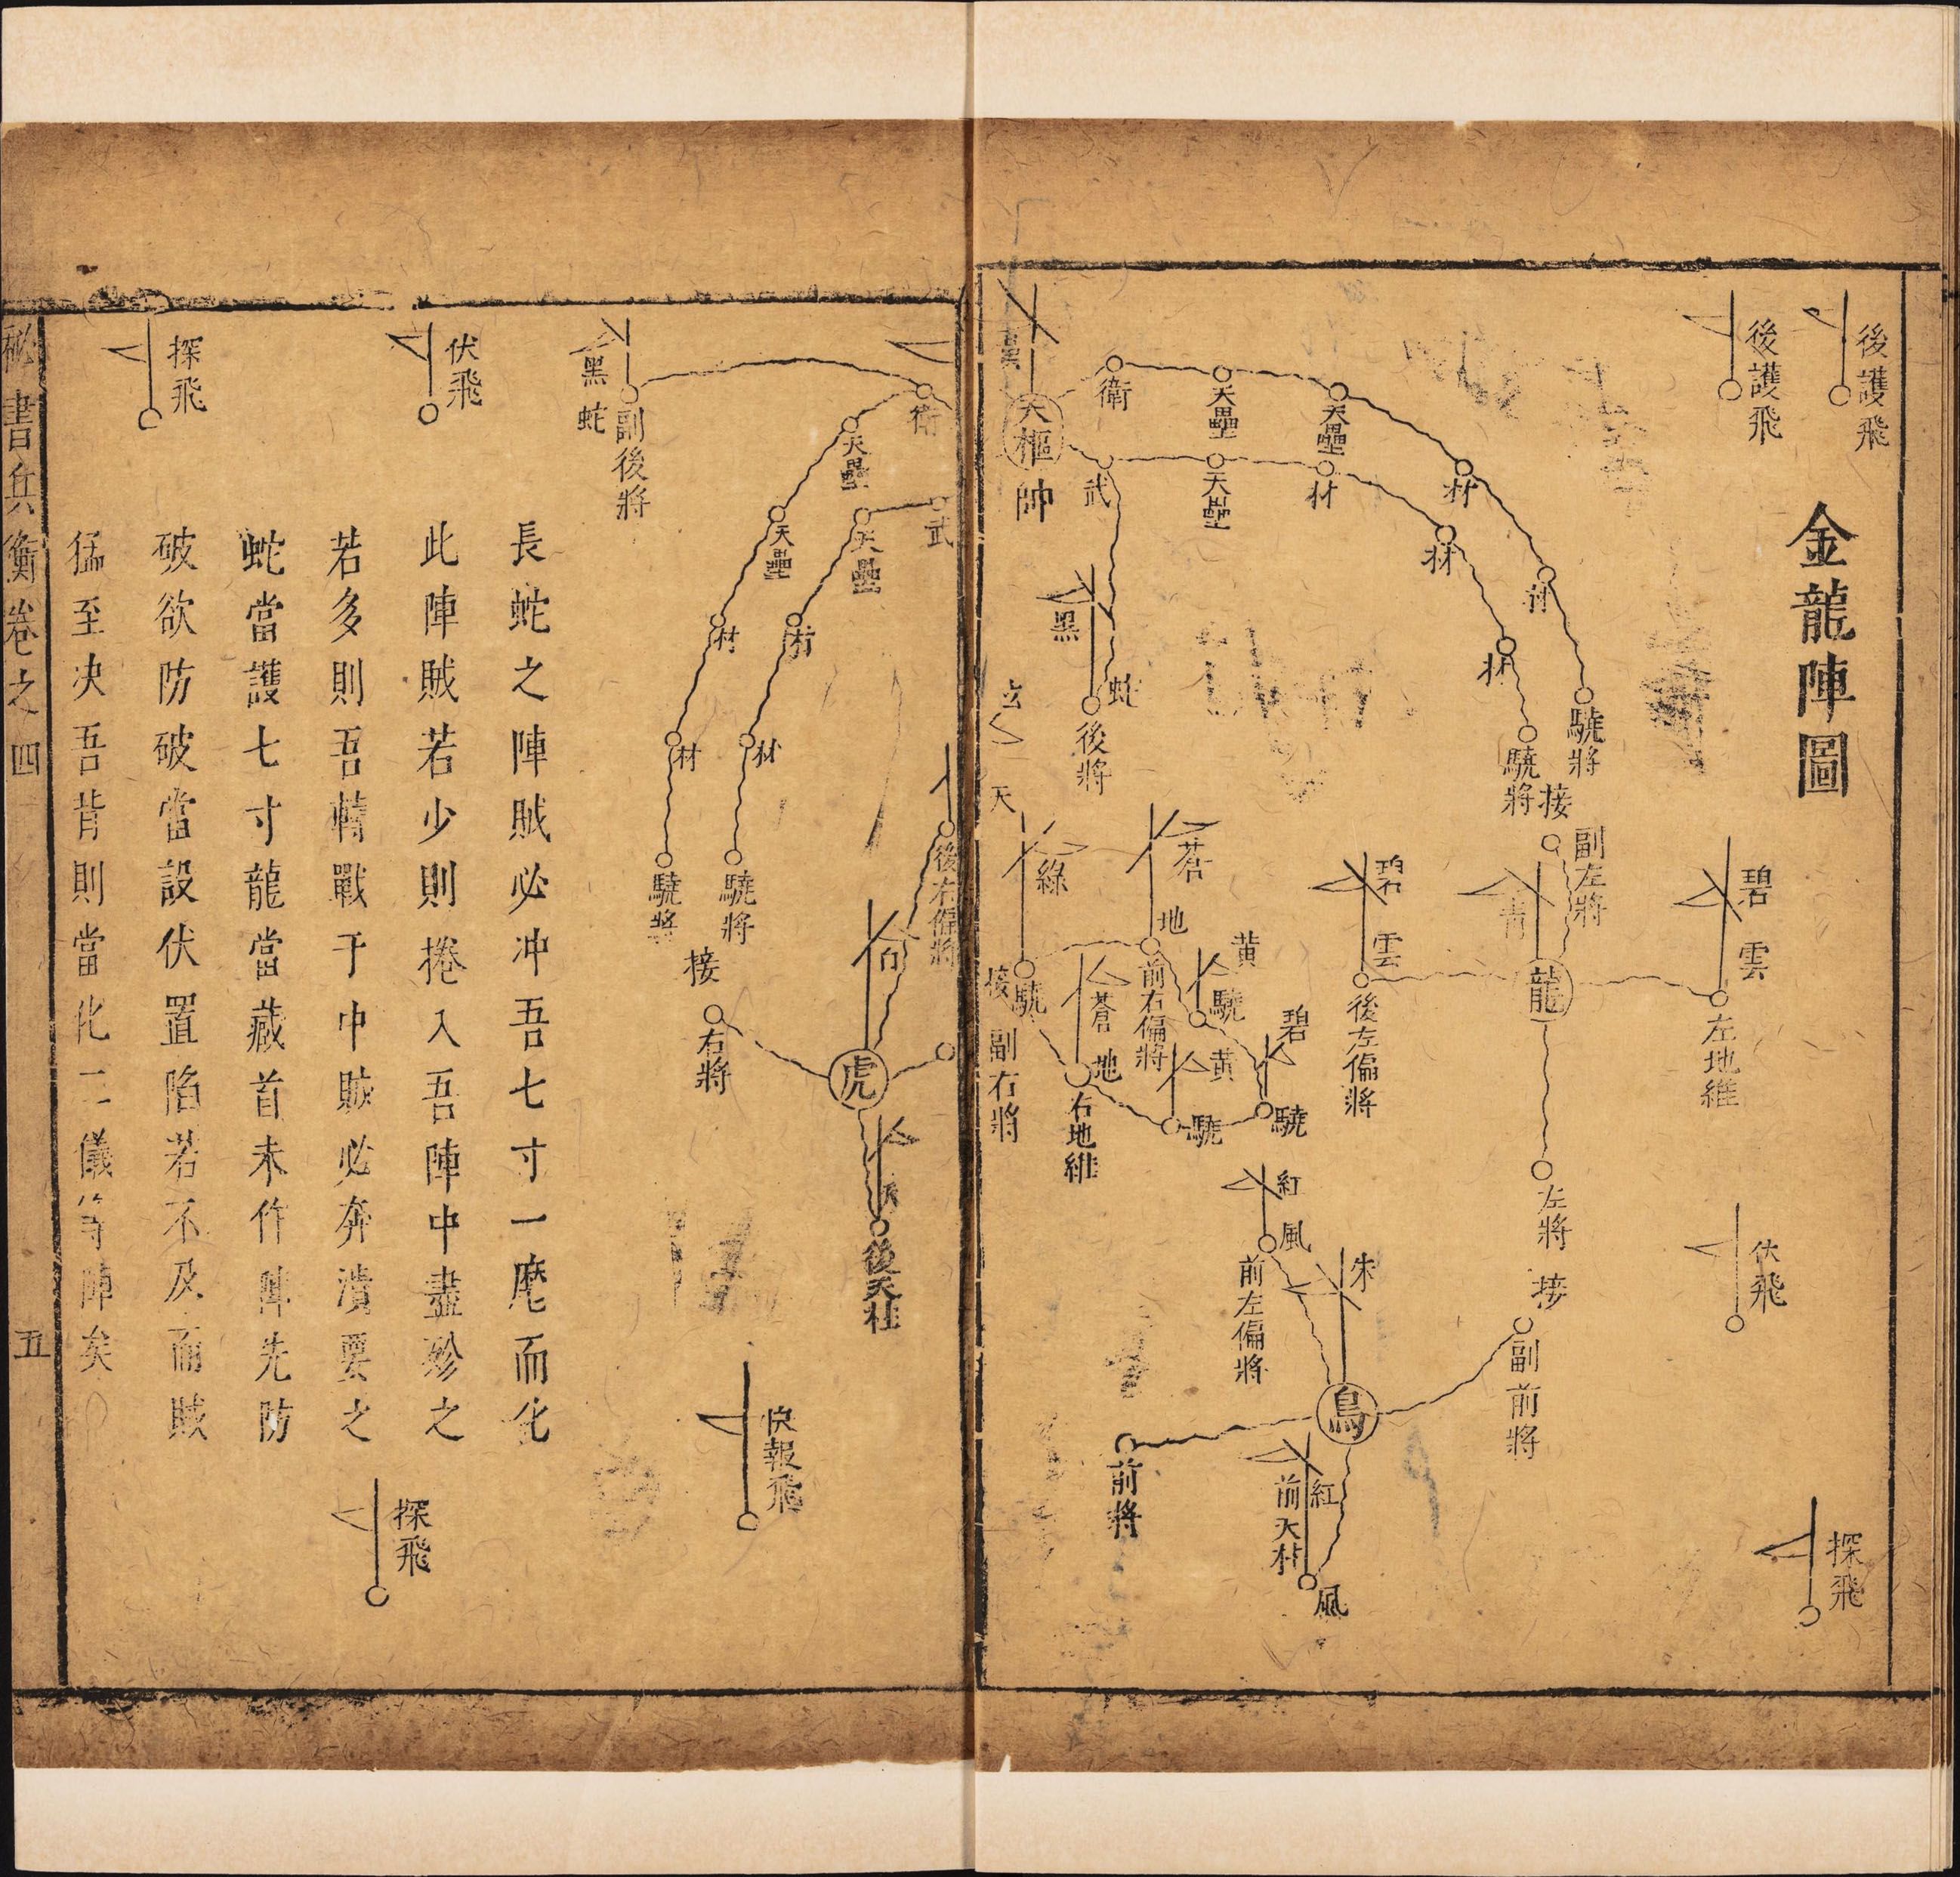 金龍陣圖
後護飛
後護飛
衛
天壘
天壘
材
材
驍將
天樞
帥
武
天壘
材
材
材
驍將
接
黑
蛇
後將
玄
天
綠
蒼
地
前右偏將
黃
驍
碧
驍
黃
驍
蒼
地
右地維
接
驍
副右將
碧
雲
後左偏將
副左將
青
龍
碧
雲
左地維
左將
接
紅
風
前左偏將
朱
鳥
副前將
前將
紅
前天柱
風
伏飛
探飛
衛
天壘
天壘
材
材
驍將
武
天壘
材
材
驍將
黑
蛇
副後將
伏飛
探飛
後右偏將
白
虎
接
右將
後天柱
快報飛
探飛
長蛇之陣賊必冲吾七寸一麾而化
此陣賊若少則捲入吾陣中盡殄之
若多則吾轉戰于中賊必奔潰要之
蛇當護七寸龍當藏首未作陣先防
破欲防破當設伏置陷若不及而賊
猛至决吾背則當化二儀等陣矣
秘書兵衡卷之四
五